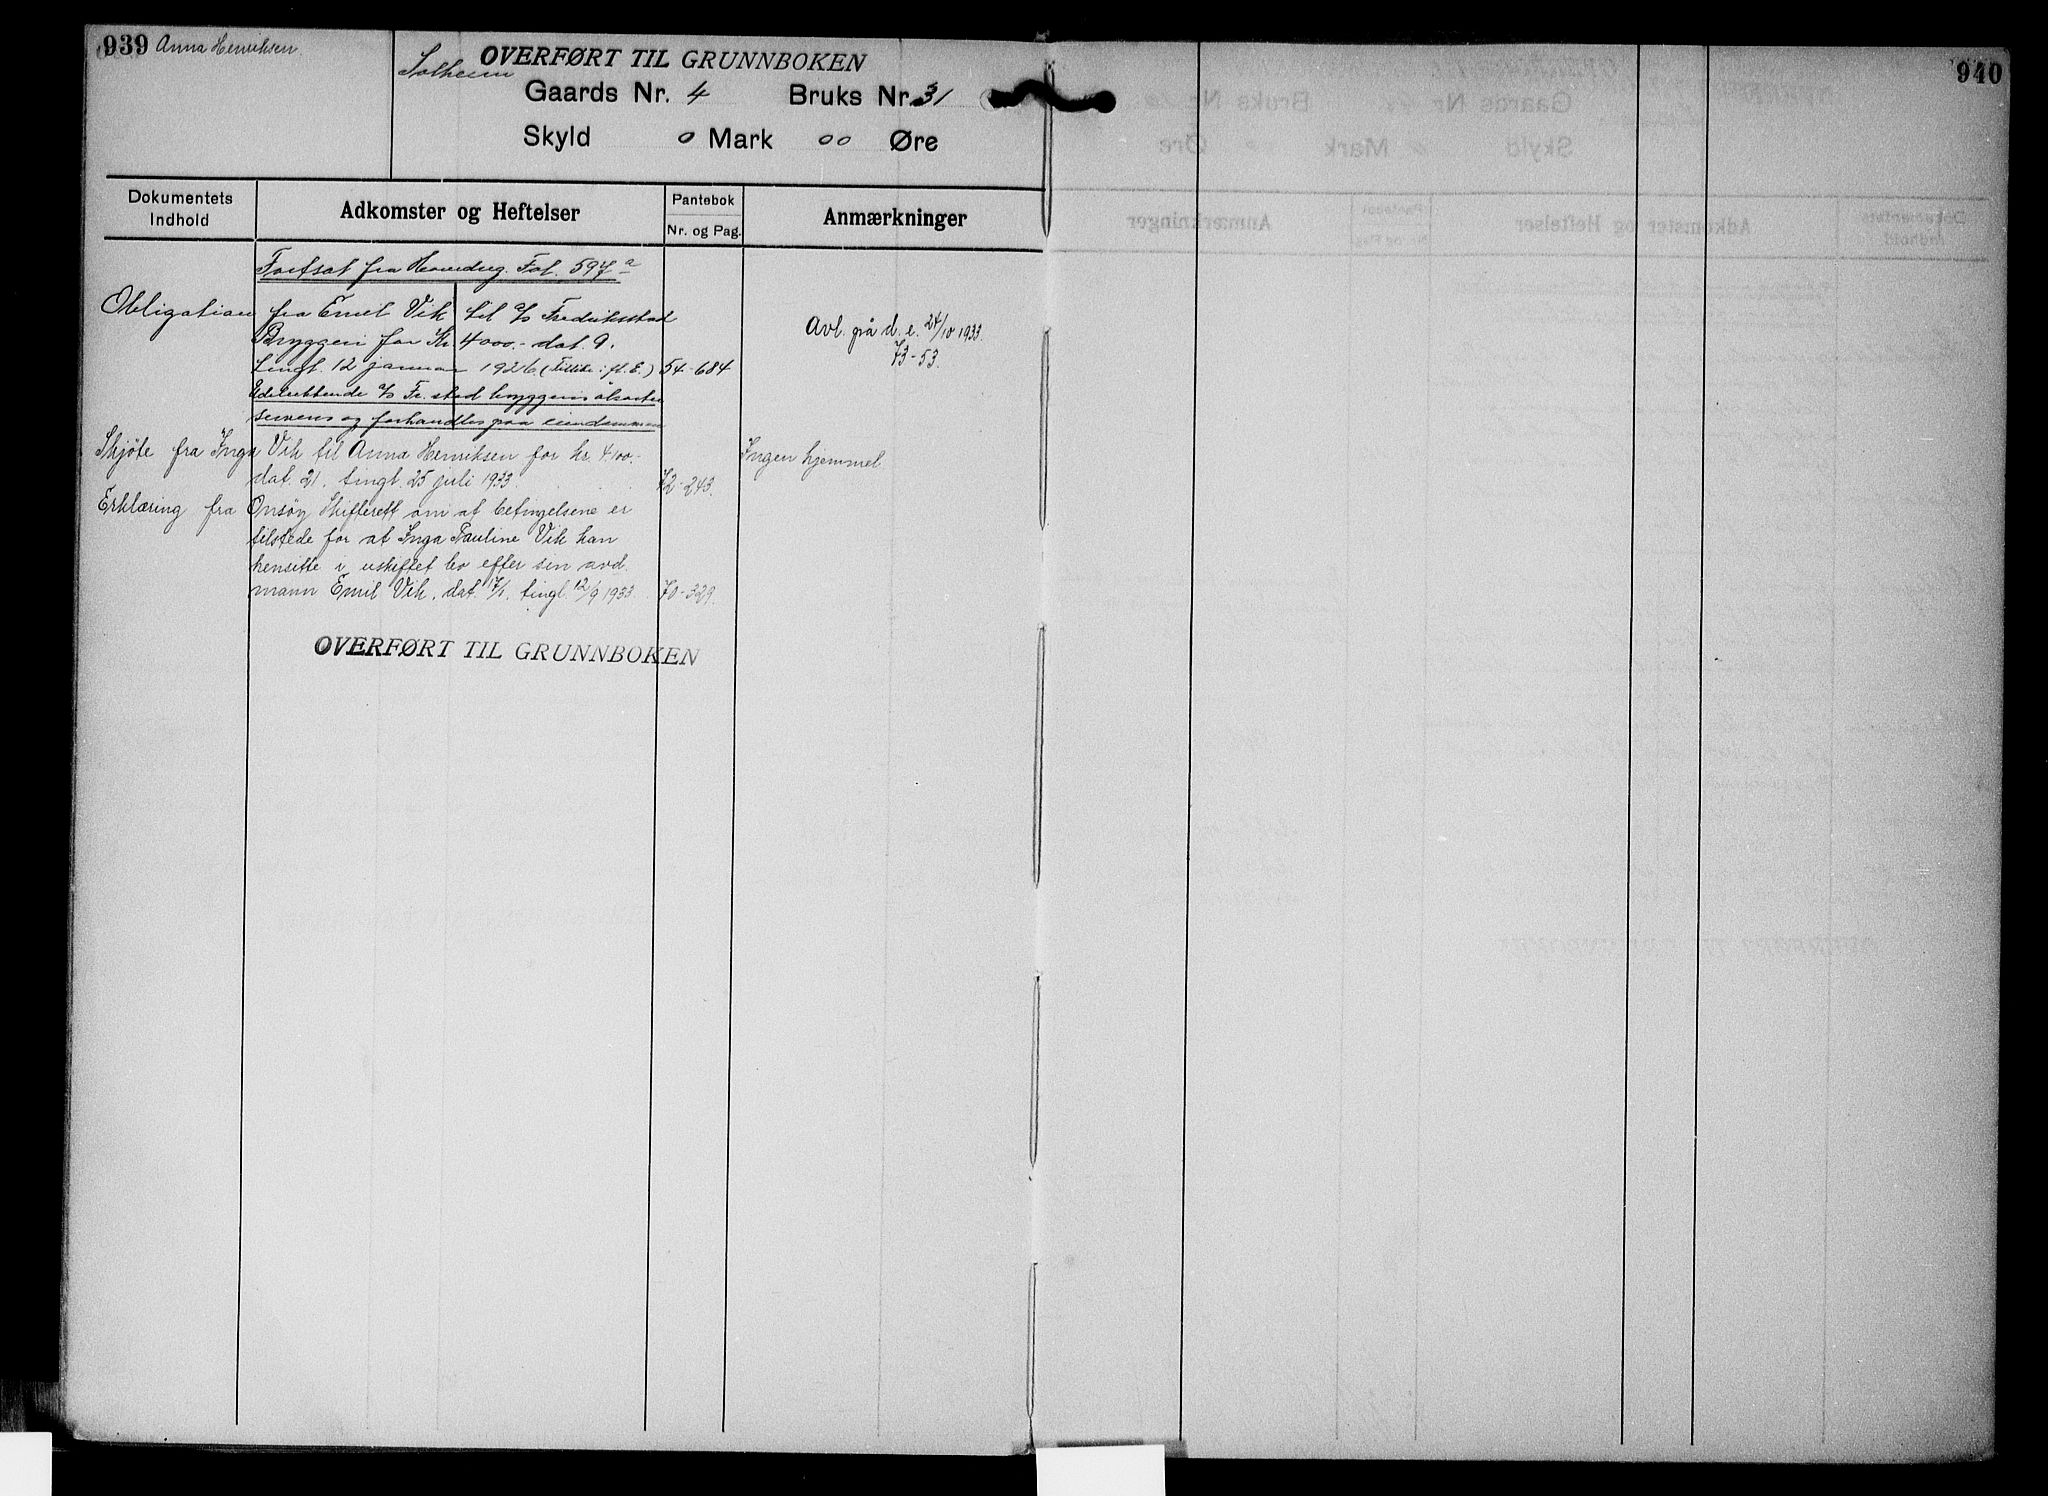 939 Anna Henriksen
OVERFØRT TIL GRUNNBOKEN
Solheim
Gaards Nr. 4 Bruks Nr. 31
Skyld 0 Mark 00 Øre
940
Dokumentets Indhold
Adkomster og Heftelser
Pantebok
Nr. og Pag.
Anmærkninger
Fortsat fra Hovedreg. Fol. 597a
Obligation fra Emil Vik til a/s Fredriksstad
Bryggeri for Kr. 4000.- dat. 9.
tingl. 12 januar 1926 54-684
Avl. på d. e. 24/10 1933.
73-53.
a/s Fr.stad bryggeris
og forhandles paa eiendommen
Skjøte fra Inga Vik til Anna Henriksen for kr. 4100.-
dat. 21. tingl. 25 juli 1933 72-243.
Ingen hjemmel
Erklæring fra Onsøy Skifterett om at betingelsene er
tilstede for at Inga Pauline Vik kan
hensitte i uskiftet bo efter sin avd.
mann Emil Vik, dat. 17/1. tingl. 12/9 1933. 70-329.
OVERFØRT TIL GRUNNBOKEN